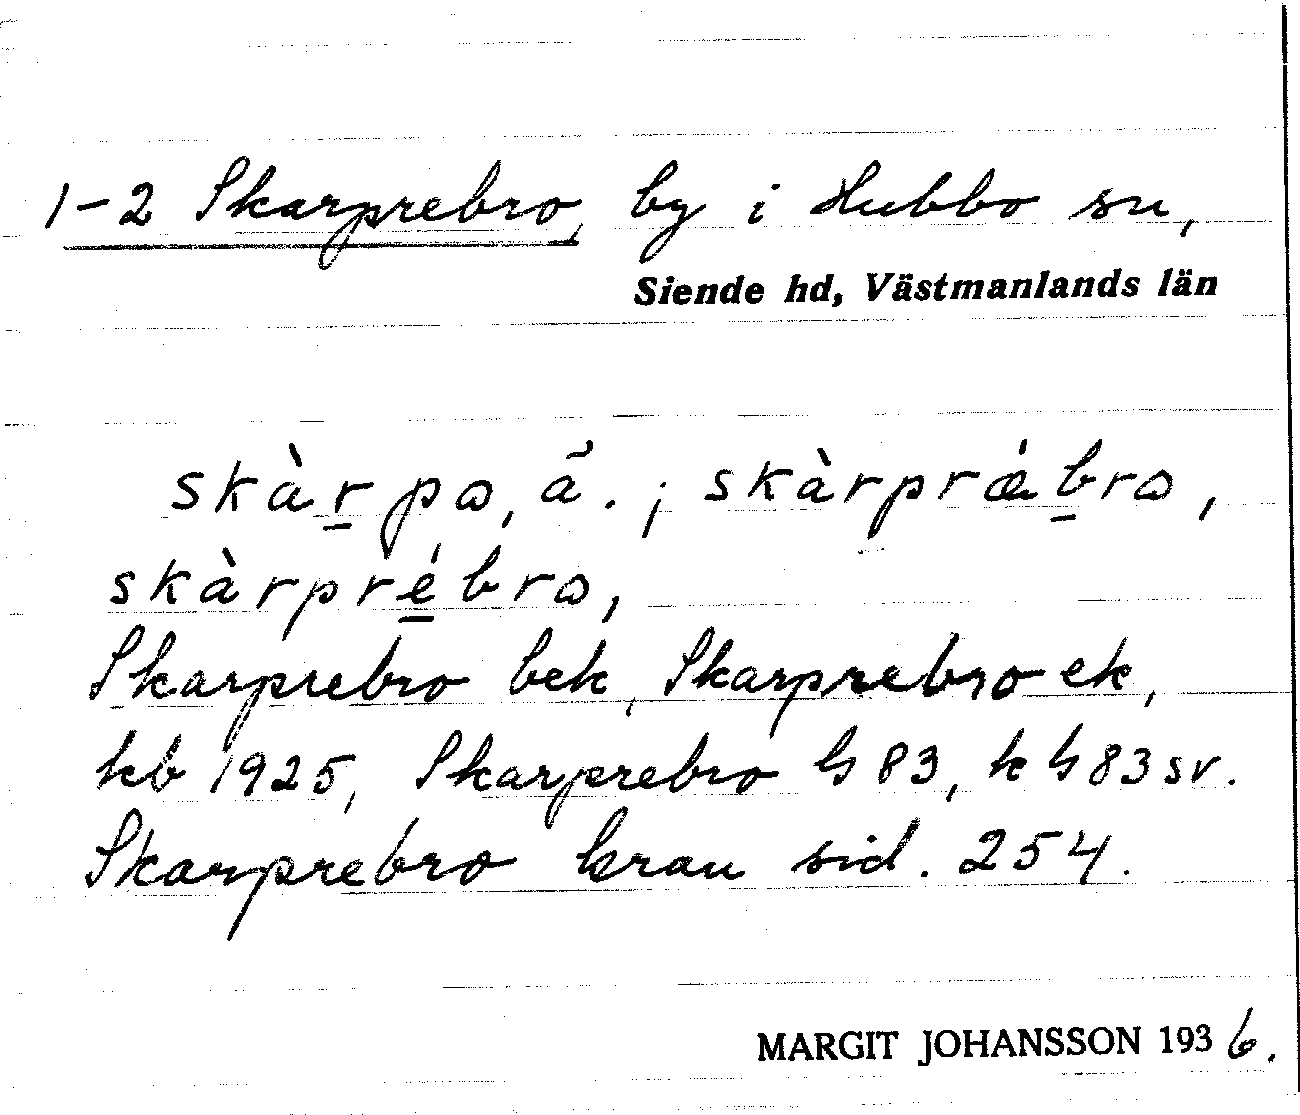 1-2 Skarprebro, by i Hubbo sn,
Siende hd, Västmanlands län
skàrpo, ã. ; skàrprǽbro,
skàrprébro,
Skarprebro bek, Skarprebro ek,
kb 1925, Skarprebro h 83, k h 83 sv.
Skarprebro krau sid. 254.
MARGIT JOHANSSON 1936.